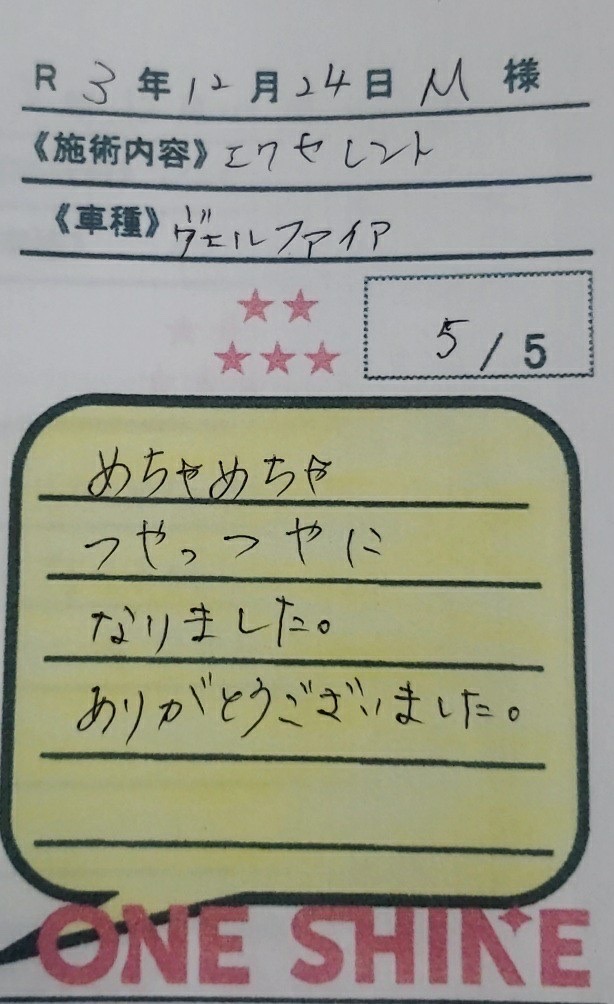 R 3年12月24日 M 様
《施術内容》エクセレント
《車種》ヴェルファイア
★★
★★★
5/5
めちゃめちゃ
つやっつやに
なりました。
ありがとうございました。
ONE SHINE